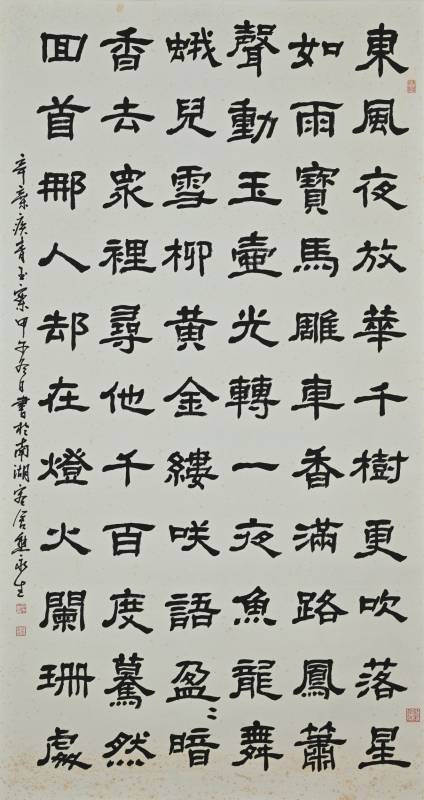 東風夜放華千樹更吹落星
如雨寶馬雕車香滿路鳳簫
聲動玉壺光轉一夜魚龍舞
蛾兒雪柳黃金縷咲語盈〻暗
香去衆裡尋他千百度驀然
回首那人却在燈火闌珊處
辛棄疾青玉案甲午冬日書於南湖客舍